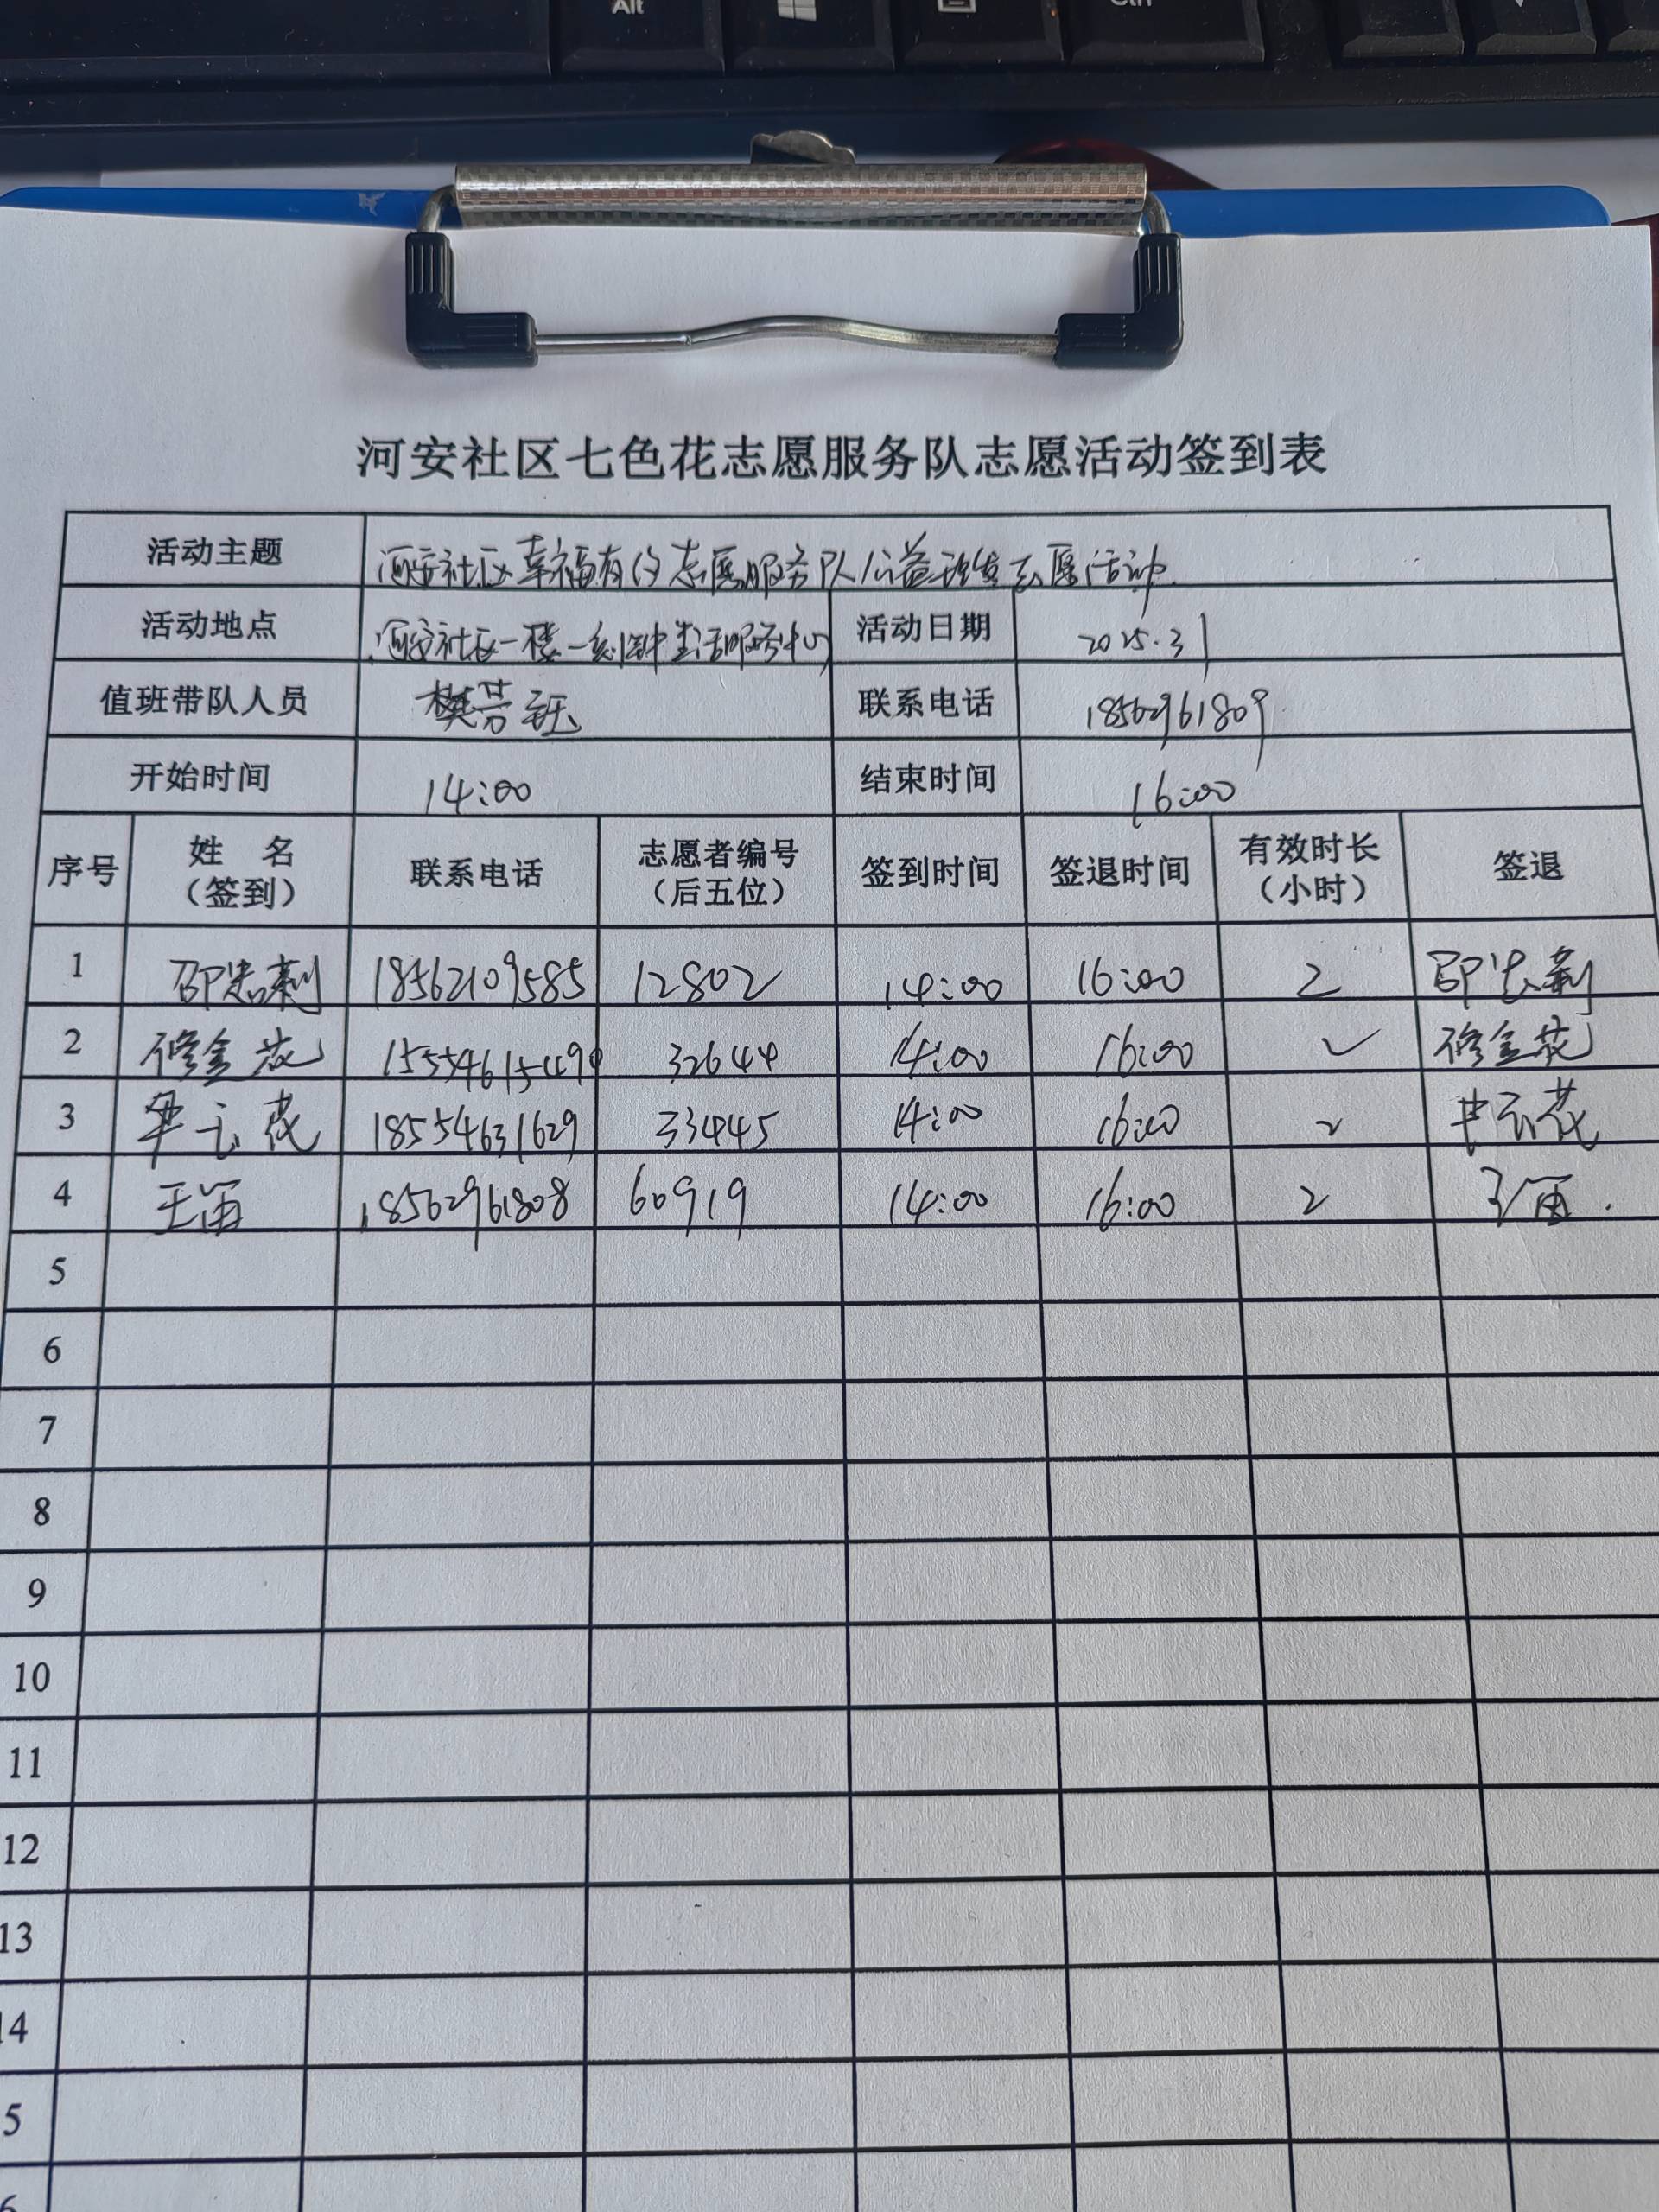 Alt
Ctrl
河安社区七色花志愿服务队志愿活动签到表
活动主题 河安社区幸福有约志愿服务队公益理发志愿活动
活动地点 河安社区一楼一刻钟生活服务中心 活动日期 2025.3.1
值班带队人员 樊芳钰 联系电话 18562961809
开始时间 14:00 结束时间 16:00
序号 姓 名（签到） 联系电话 志愿者编号（后五位） 签到时间 签退时间 有效时长（小时） 签退
1 邵 18562109585 12802 14:00 16:00 2 邵
2 修金花 32644 14:00 16:00 2 修金花
3 云花 18554631629 33445 14:00 16:00 2 云花
4 王笛 18562961808 60919 14:00 16:00 2 王笛.
5
6
7
8
9
10
11
12
13
14
5
6